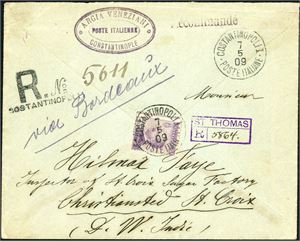 ARGIA VENEZIANI
POSTE ITALIENNE
CONSTANTINOPLE
ecommandé
COSTANTINOPOLI
7
5
09
POSTE ITALIANE
R. No
COSTANTINOPOLI
5611
via Bordeaux
Monsieur
COSTANTINOPOLI
7
5
09
ST. THOMAS
R 0864.
Hilmar Faye
Inspector of St. Croix Sugar Factory
Christiansted St. Croix
(D. W. Indie)